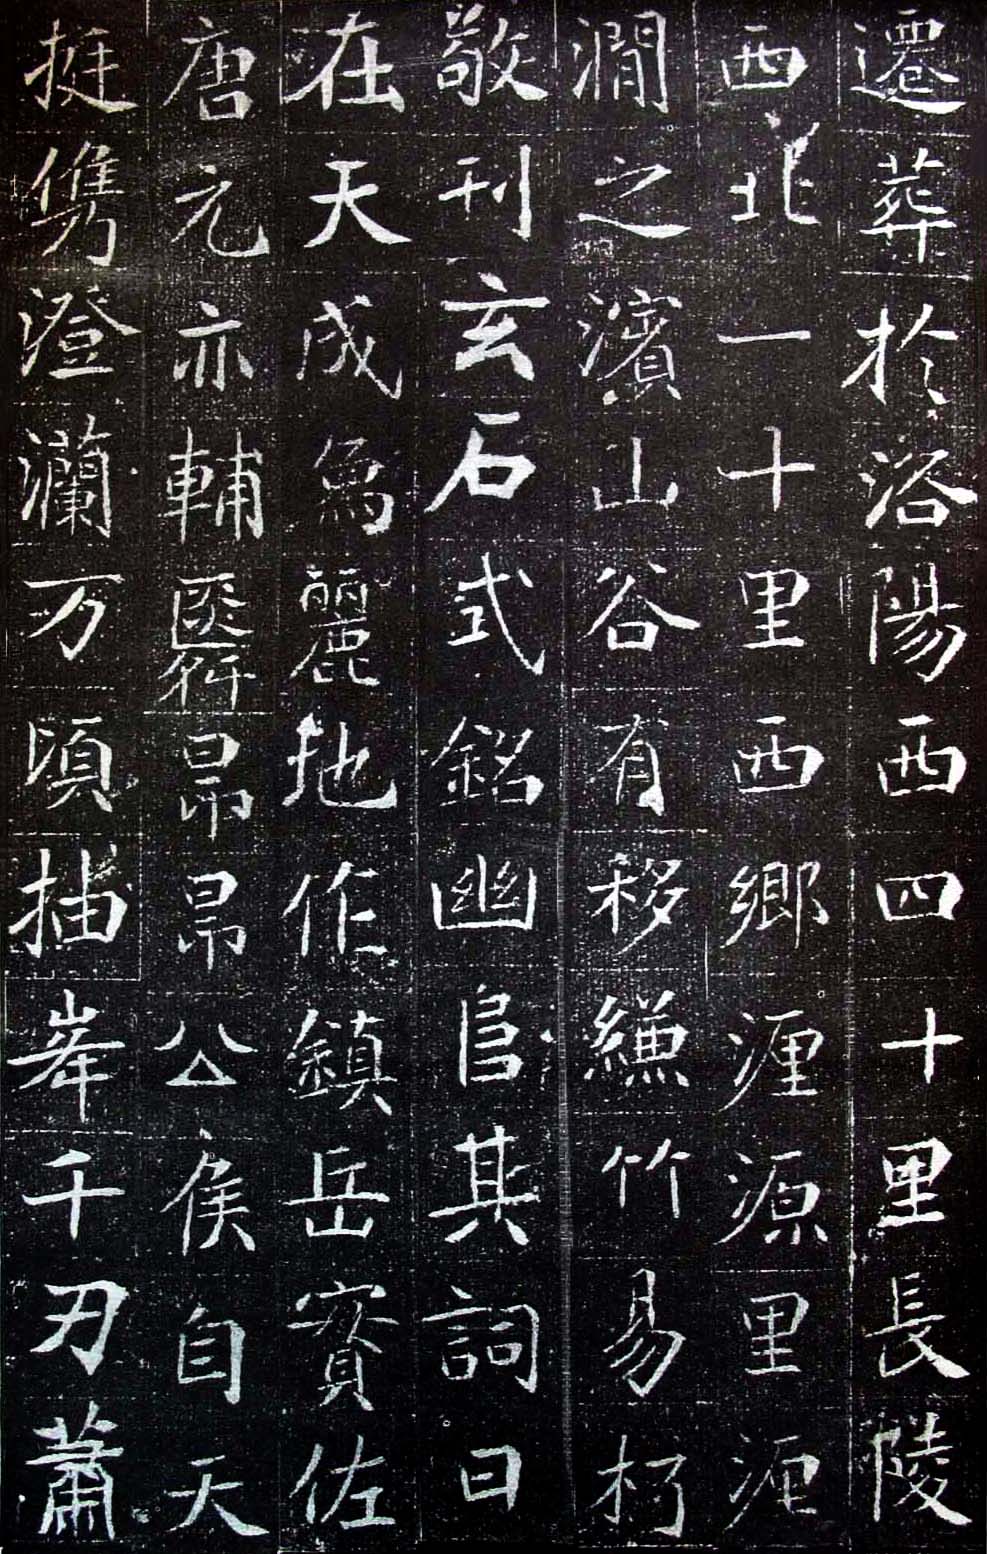 遷葬於洛陽西四十里長陵
西北一十里西鄉瀍源里瀍
澗之濱山谷有移縑竹易朽
敬刊玄石式銘幽𨸏其詞曰
在天成象麗地作鎮岳實佐
唐元亦輔毉斡昂昂公侯自天
挺儁澄瀾万頃插峯千刃蕭